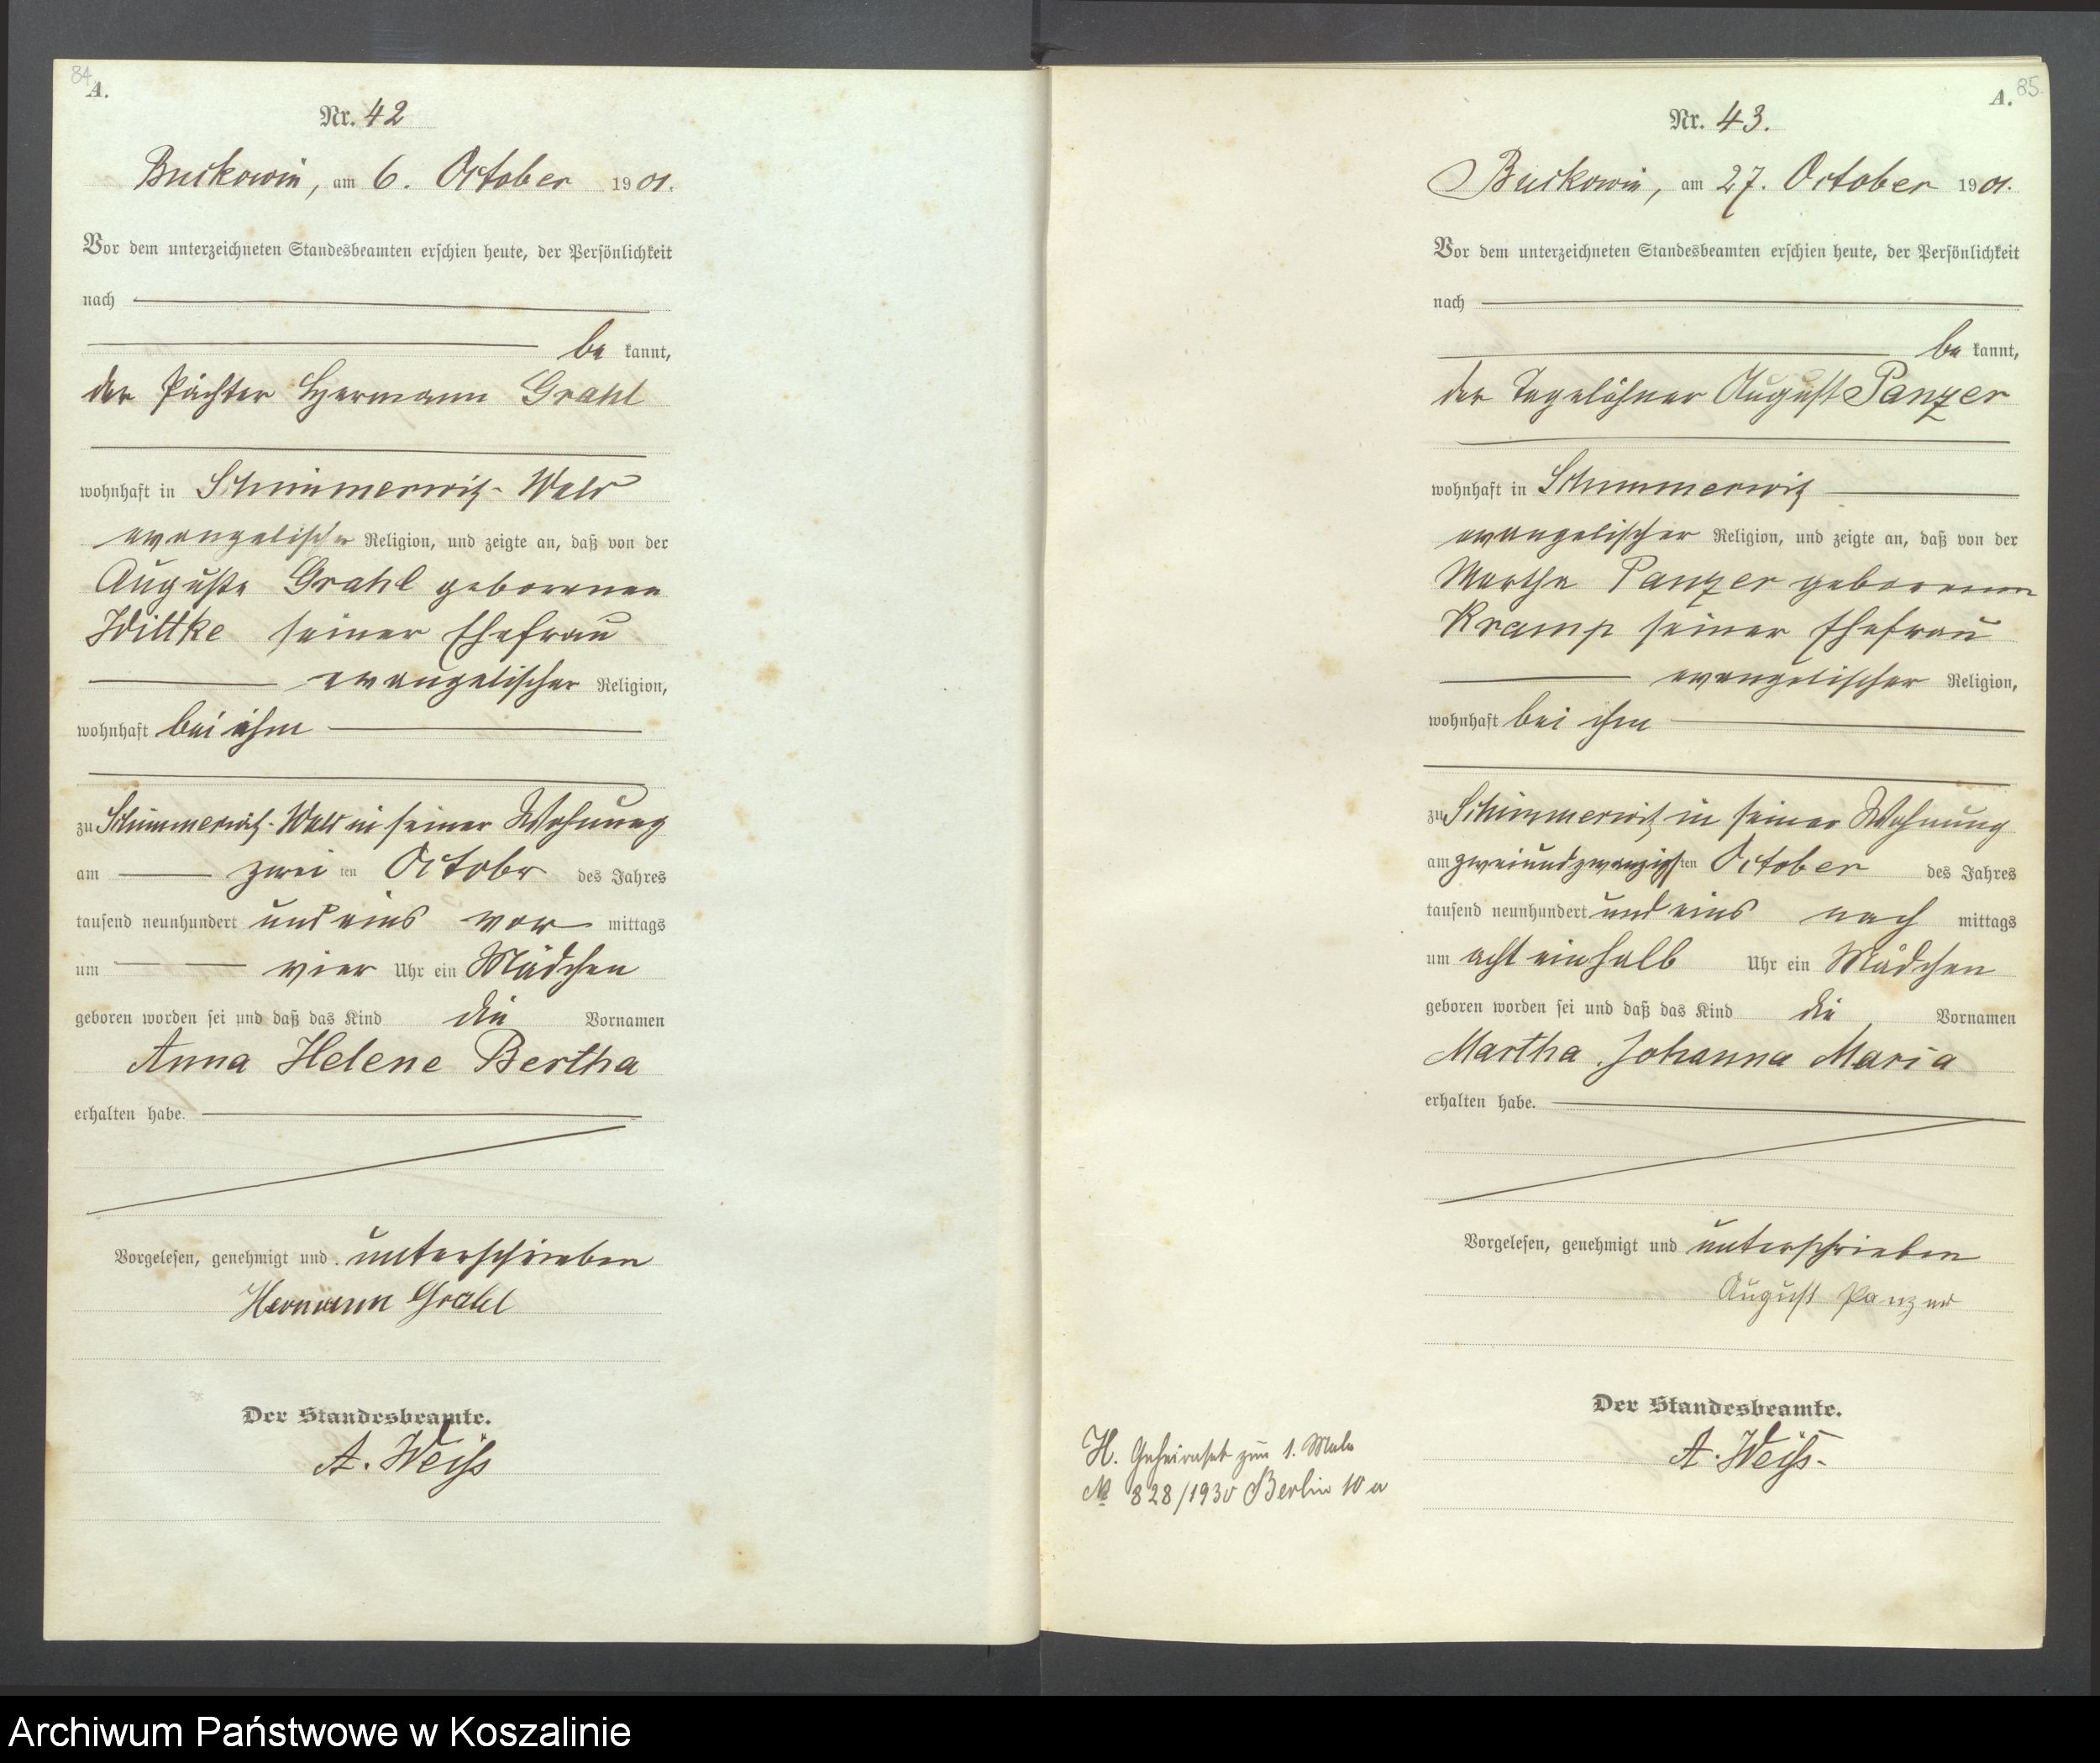 84
A.
Nr. 42
Buckowin, am 6. October 1901.
Vor dem unterzeichneten Standesbeamten erschien heute, der Persönlichkeit
nach
be kannt,
der Pächter Hermann Grahl
wohnhaft in Schimmerwitz-Wald
evangelischer Religion, und zeigte an, daß von der
Auguste Grahl geborenen
Wittke seiner Ehefrau
evangelischer Religion,
wohnhaft bei ihm
zu Schimmerwitz-Wald in seiner Wohnung
am zwei ten October des Jahres
tausend neunhundert und eins vor mittags
um vier Uhr ein Mädchen
geboren worden sei und daß das Kind die Vornamen
Anna Helene Bertha
erhalten habe.
Vorgelesen, genehmigt und unterschrieben
Hermann Grahl
Der Standesbeamte.
A. Weiß
85
A.
Nr. 43.
Buckowin, am 27. October 1901.
Vor dem unterzeichneten Standesbeamten erschien heute, der Persönlichkeit
nach
be kannt,
der Tagelöhner August Panzer
wohnhaft in Schimmerwitz
evangelischer Religion, und zeigte an, daß von der
Martha Panzer geborenen
Kramp seiner Ehefrau
evangelischer Religion,
wohnhaft bei ihm
zu Schimmerwitz in seiner Wohnung
am zweiundzwanzigsten October des Jahres
tausend neunhundert und eins nach mittags
um acht einhalb Uhr ein Mädchen
geboren worden sei und daß das Kind die Vornamen
Martha Johanna Maria
erhalten habe.
Vorgelesen, genehmigt und unterschrieben
August Panzer
Der Standesbeamte.
A. Weiß.
H. Geheiratet zum 1. Male
№ 828/1930 Berlin 10 a
Archiwum Państwowe w Koszalinie